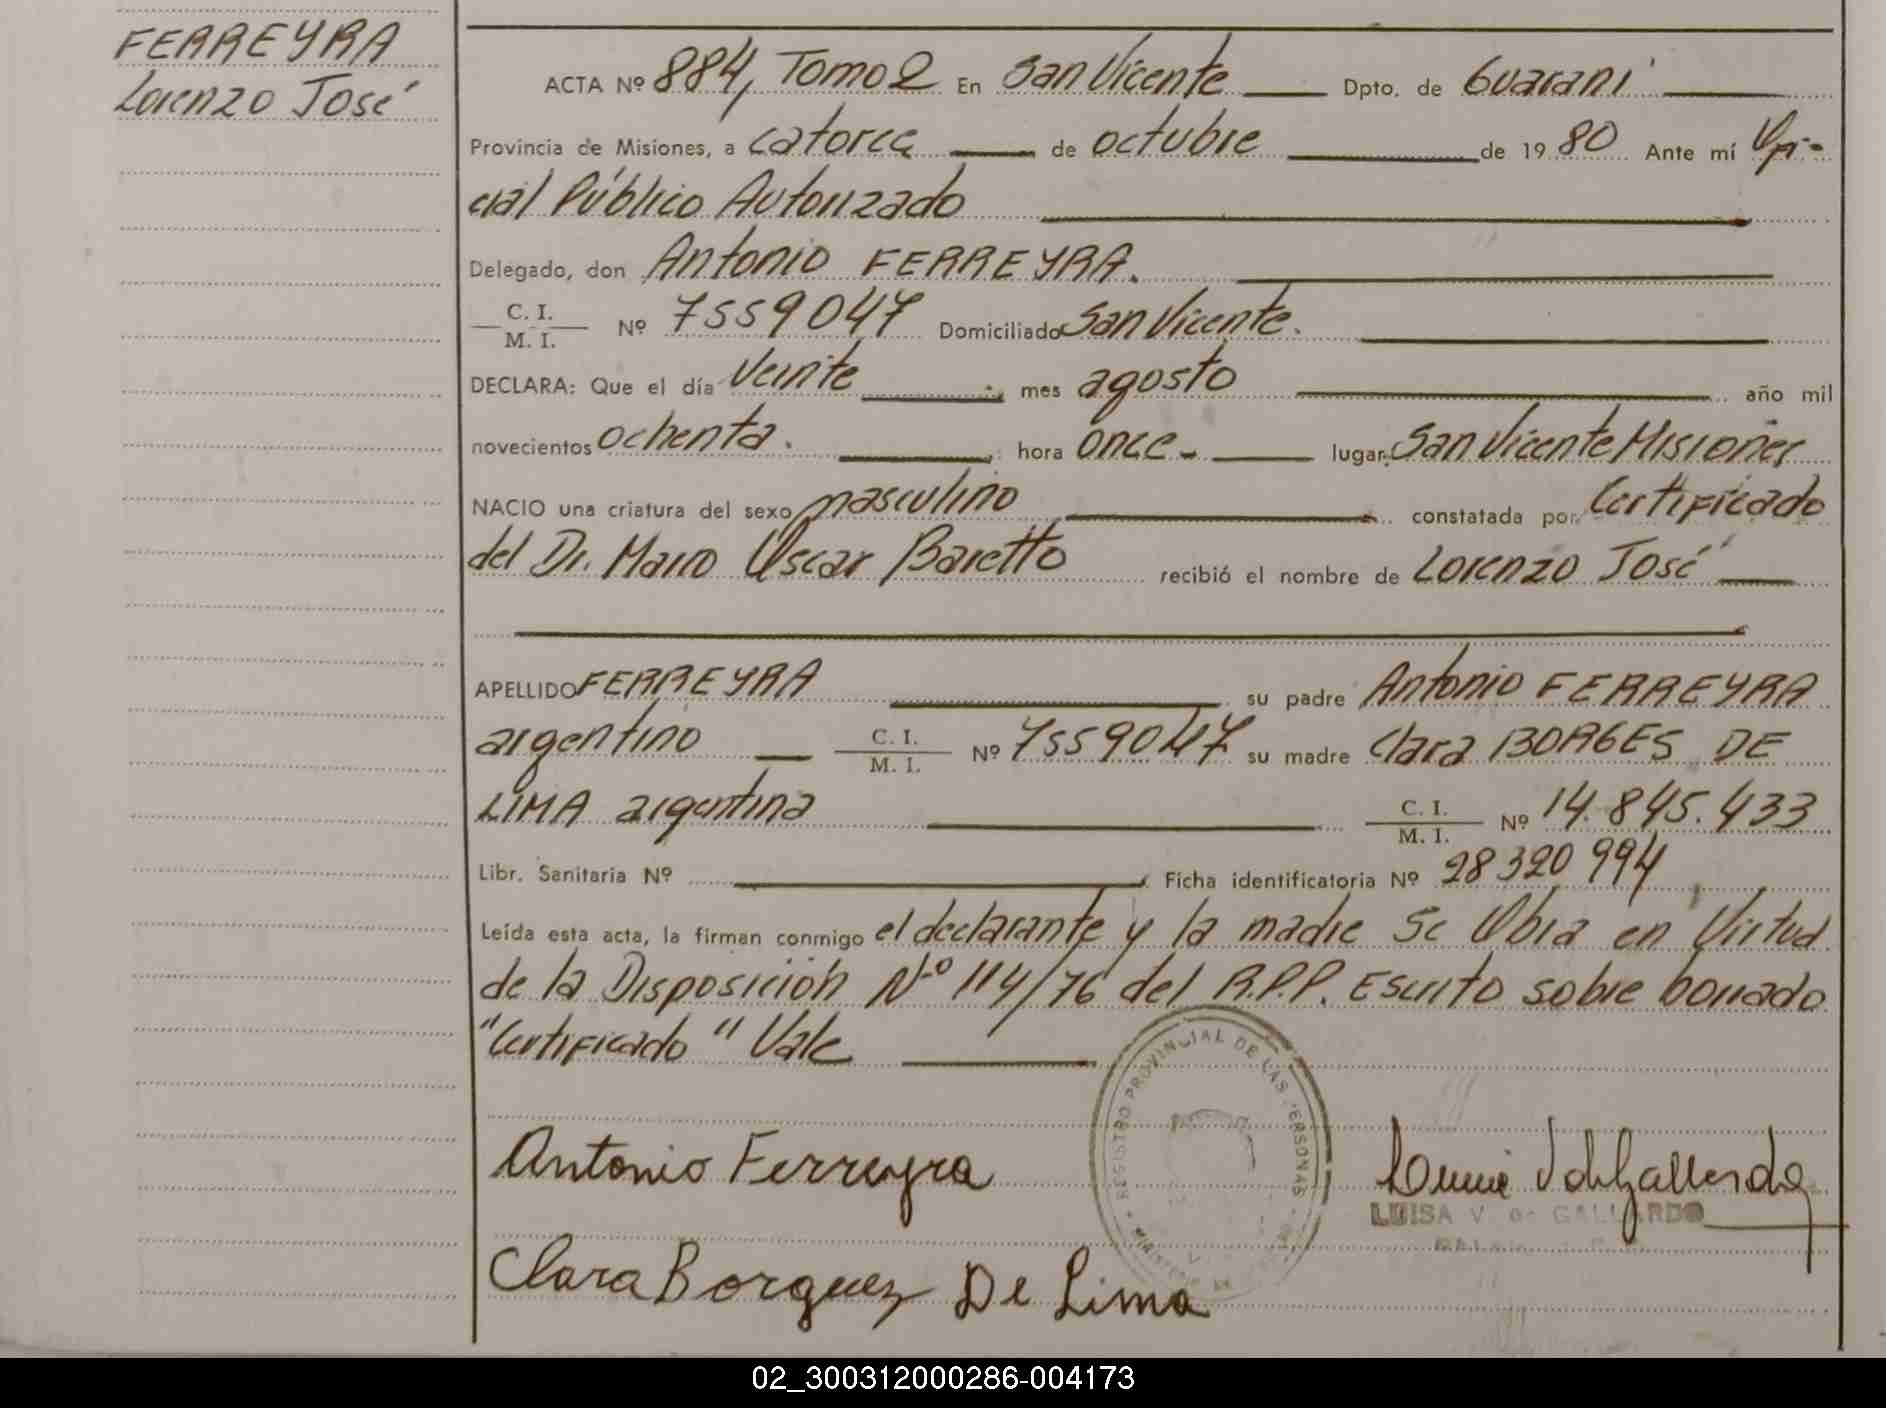 FERREYRA
Lorenzo José
ACTA Nº 884, Tomo 2 En San Vicente Dpto. de Guaraní
Provincia de Misiones, a catorce de octubre de 1980 Ante mí Ofi-
cial Público Autorizado
Delegado, don Antonio FERREYRA.
C. I.
M. I. Nº 7559047 Domiciliado San Vicente.
DECLARA: Que el día veinte mes agosto año mil
novecientos ochenta. hora once- lugar San Vicente Misiones
NACIO una criatura del sexo masculino constatada por Certificado
del Dr. Mario Oscar Baretto recibió el nombre de Lorenzo José
APELLIDO FERREYRA su padre Antonio FERREYRA
argentino C. I. M. I. Nº 7559047 su madre Clara BORGES DE
LIMA argentina C. I. M. I. Nº 14.845.433
Libr. Sanitaria Nº Ficha identificatoria Nº 28320994
Leída esta acta, la firman conmigo el declarante y la madre Se Obra en Virtud
de la Disposición Nº 114/76 del R.P.P. Escrito sobre borrado
"Certificado" Vale
REGISTRO PROVINCIAL DE LAS PERSONAS
Antonio Ferreyra
LUISA V. de GALLARDO
Clara Borguez De Lima
02_300312000286-004173